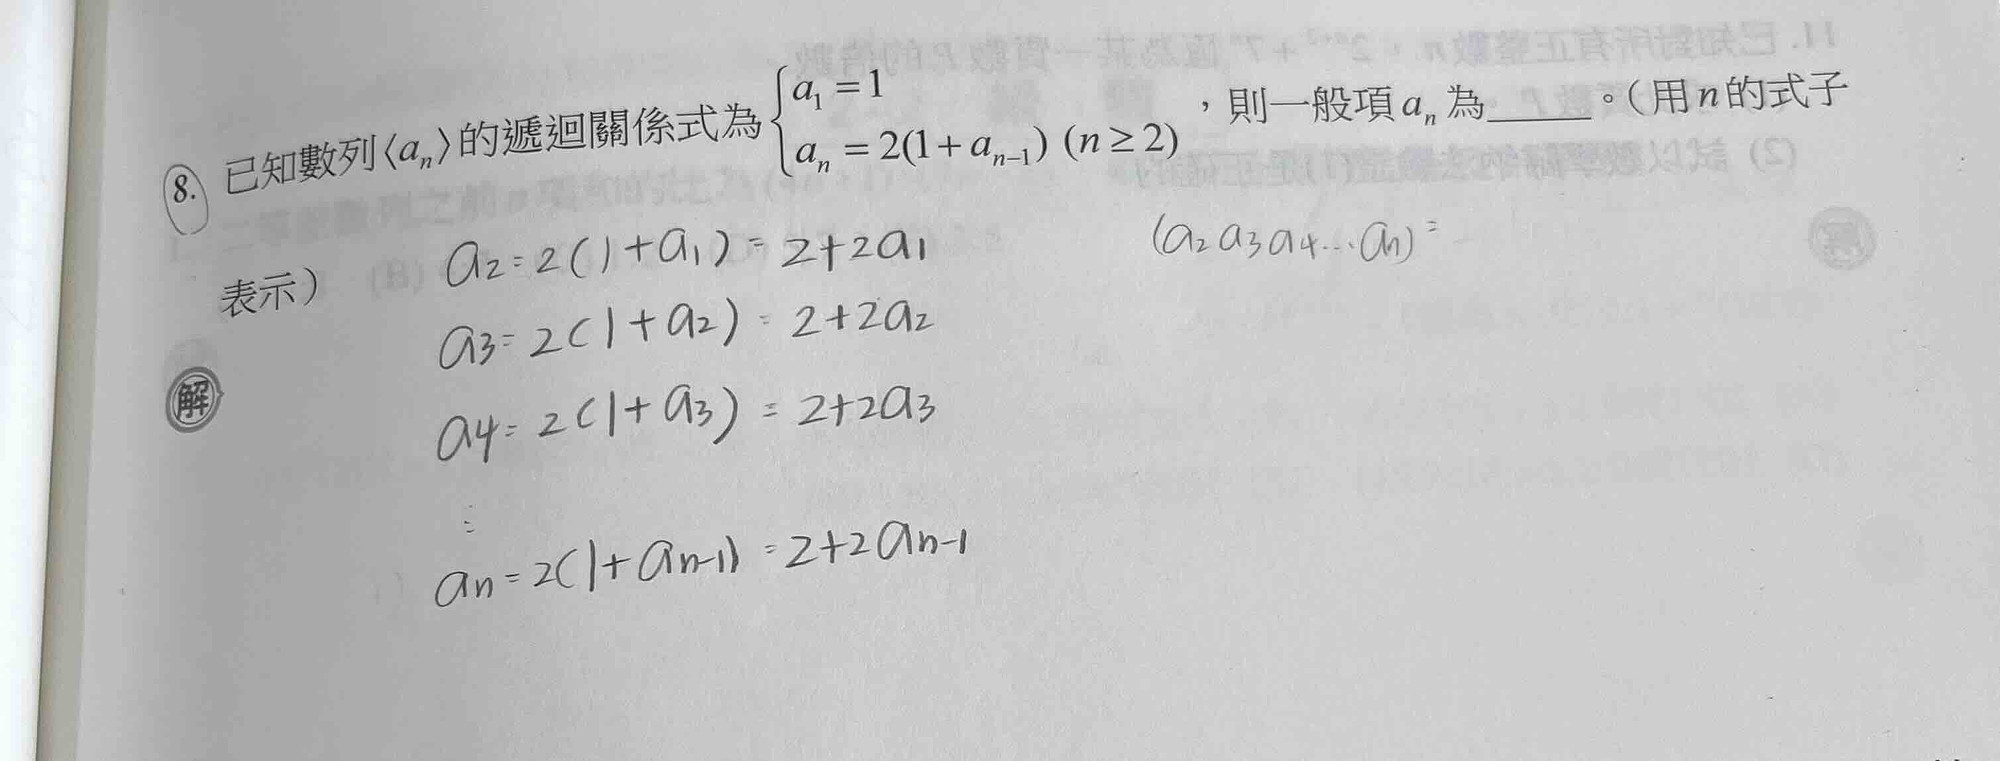 8. 已知數列⟨aₙ⟩的遞迴關係式為 { a₁ = 1
aₙ = 2(1+aₙ₋₁) (n ≥ 2) ,則一般項 aₙ 為_____。(用 n 的式子
表示)
a₂ = 2(1+a₁) = 2+2a₁
(a₂ a₃ a₄ ⋯ aₙ) =
a₃ = 2(1+a₂) = 2+2a₂
解
a₄ = 2(1+a₃) = 2+2a₃
⋮
aₙ = 2(1+aₙ₋₁) = 2+2aₙ₋₁